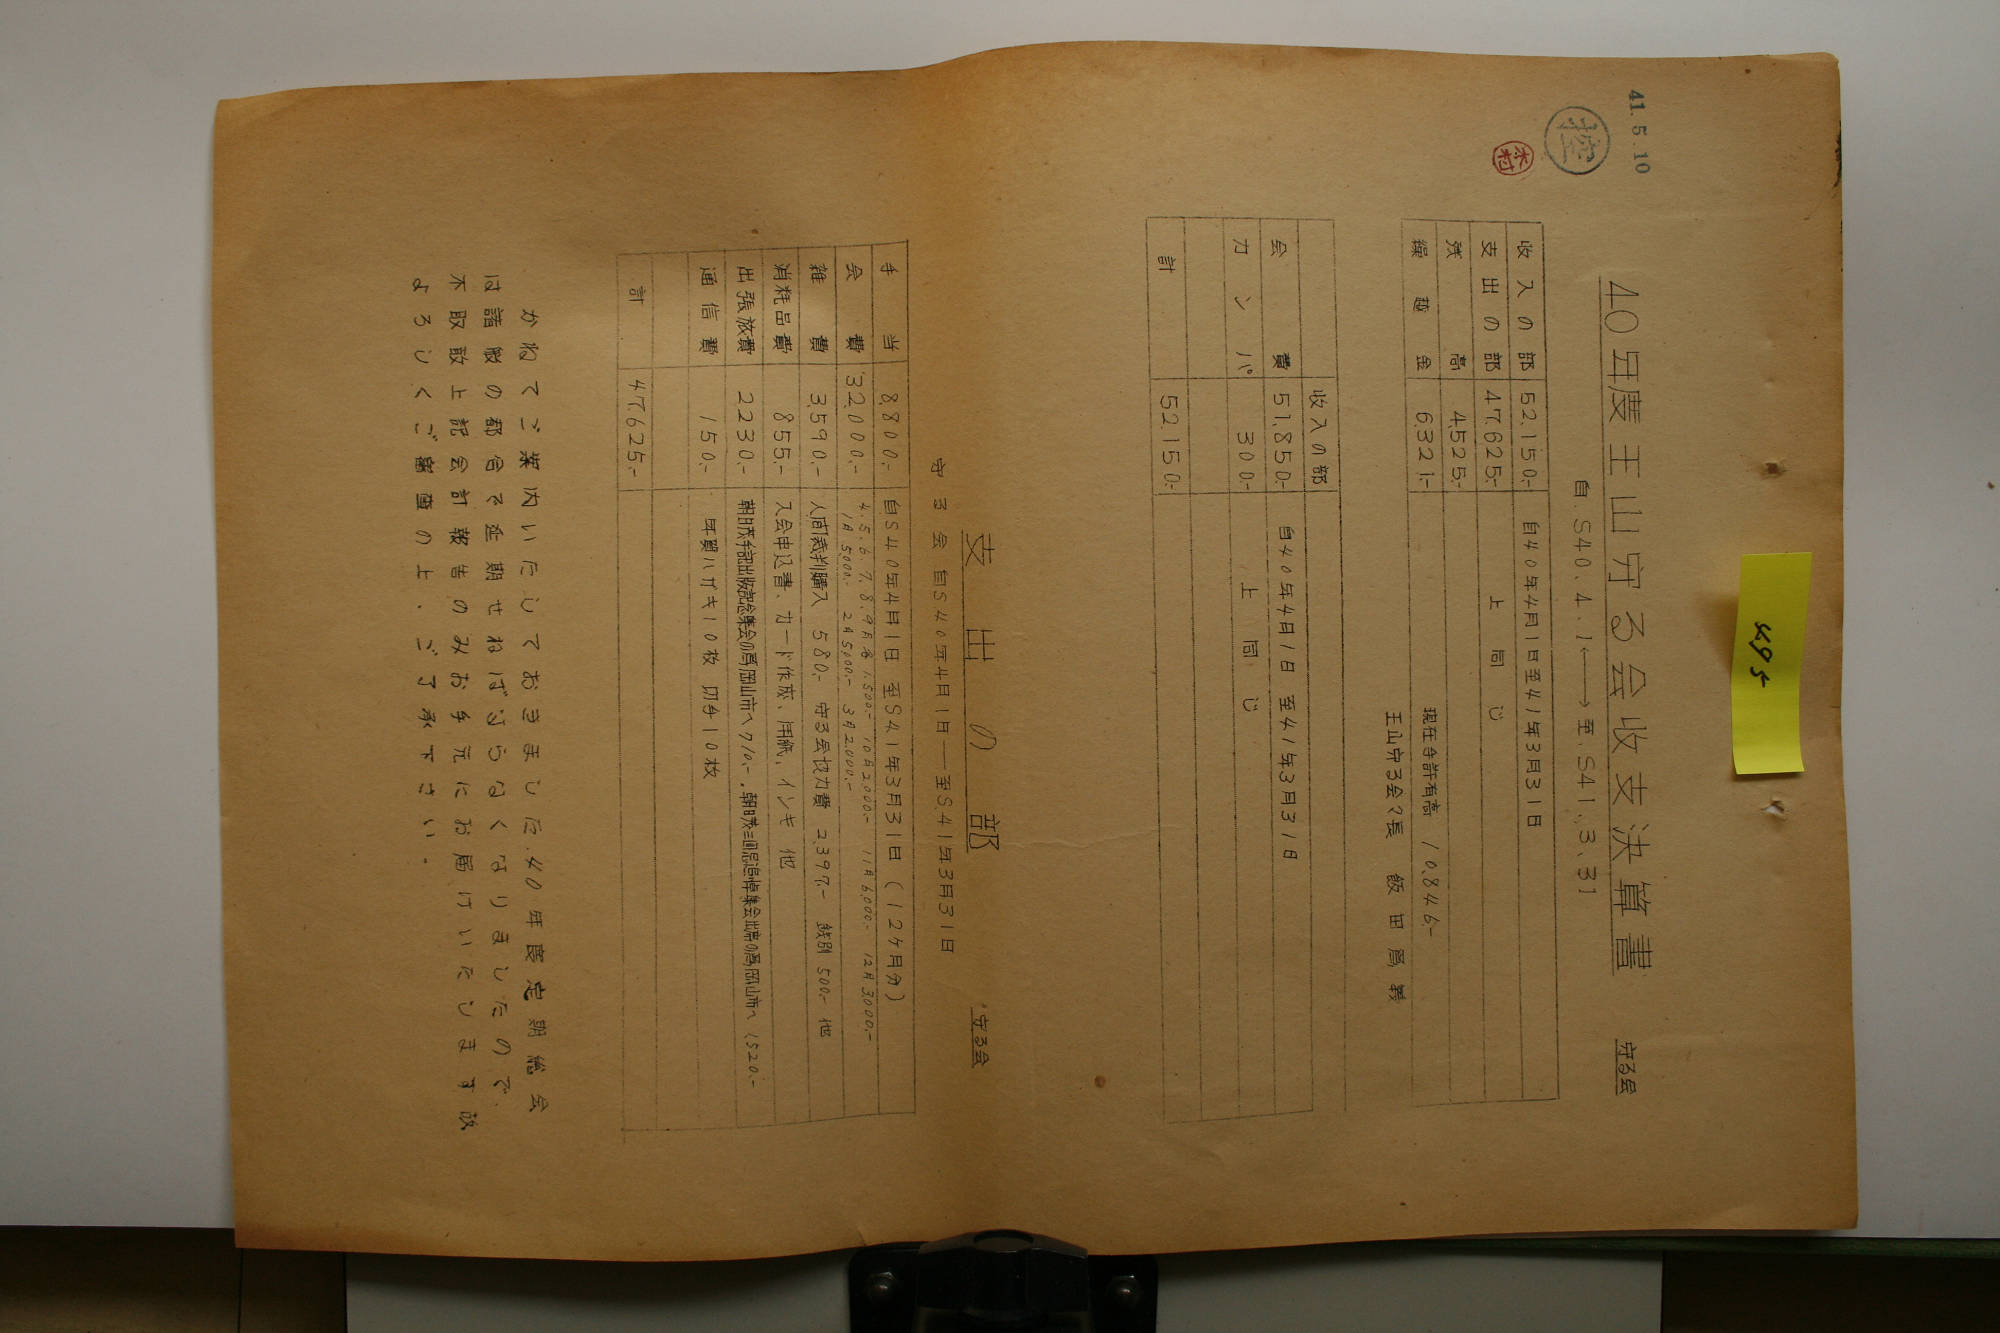 495
41.5.10
控
木村
40年度王山守る会收支決算書 守る会
自.S40.4.1←→至.S41.3.31
收入の部 52,150.- 自40年4月1日至41年3月31日
支出の部 47,625.- 上同じ
残高 4,525.-
繰越金 6,321.- 現在合計有高 10,846.-
王山守る会々長 飯田為義
收入の部
会費 51,850.- 自40年4月1日 至41年3月31日
カンパ 300.- 上同じ
計 52,150.-
支出の部 守る会
守る会 自S40年4月1日—至S.41年3月31日
手当 8,800.- 自S40年4月1日 至S41年3月31日(12ケ月分)
会費 32,000.- 4.5.6.7.8.9月各1,500.- 10月2,000.- 11月6,000.- 12月3,000.-
1月5,000.- 2月5,000.- 3月2,000.-
雑費 3,590.- 人間裁判購入 580.- 守る会協力費 2,397.- 餞別 500.- 他
消耗品費 855.- 入会申込書、カード作成、用紙、インキ 他
出張旅費 2,230.- 朝日茂手記出版記念集会の為岡山市へ710.-.朝日茂三回忌追悼集会出席の為岡山市へ1,520.-
通信費 150.- 年賀ハガキ10枚 切手10枚
計 47,625.-
かねてご案内いたしておきました.40年度定期総会
は諸般の都合で延期せねばならなくなりましたので.
不取敢上記会計報告のみお手元にお届けいたします故
よろしくご審査の上.ご了承下さい。